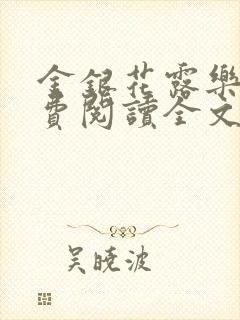 金銀花露樂
費閱讀全文
吴曉波